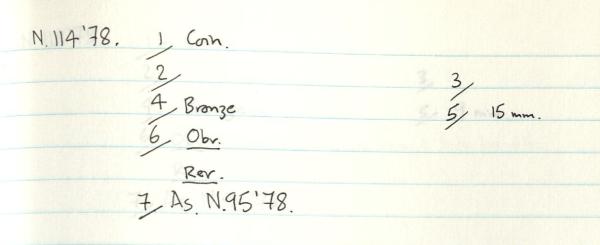 N.114'78. 1/ Coin.
2/
3/
4/ Bronze
5/ 15 mm.
6/ Obv.
Rev.
7/ As. N.95'78.